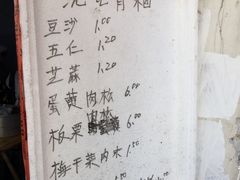 豆沙 1.00
五仁 1.20
芝蔴 1.20
蛋黄肉松 6.00
板栗肉松 6.00
梅干菜肉